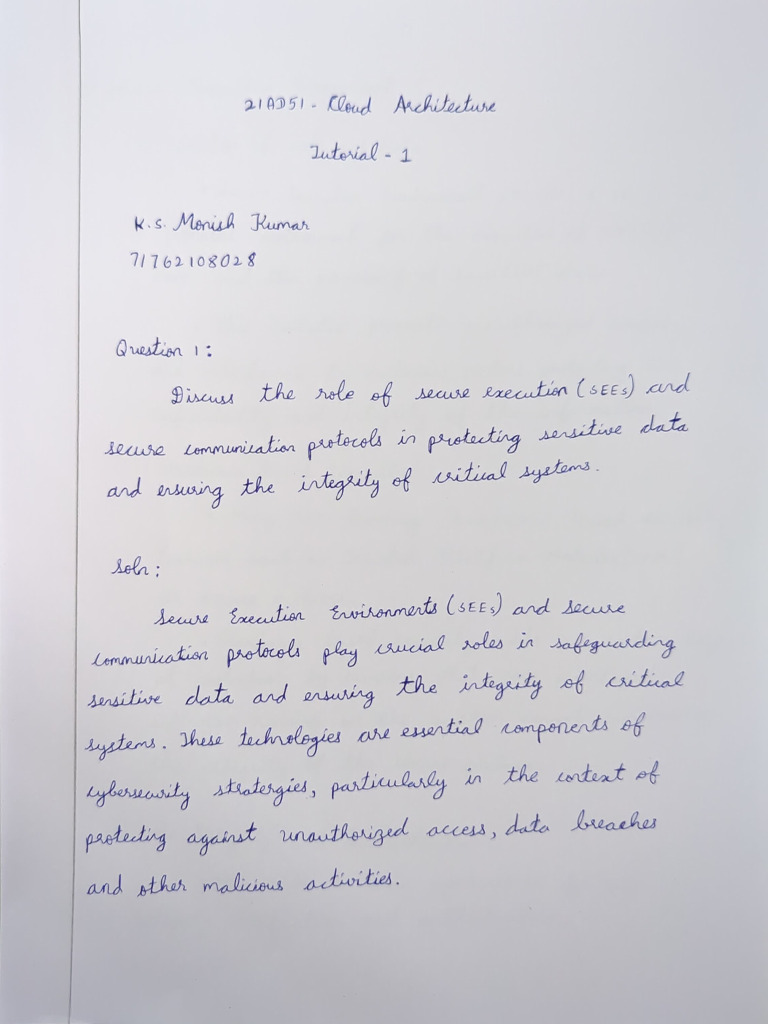 21AD51 - Cloud Architecture
Tutorial - 1
K.S. Monish Kumar
71762108028
Question 1 :
Discuss the role of secure execution (SEEs) and
secure communication protocols in protecting sensitive data
and ensuring the integrity of critical systems.
Soln :
Secure Execution Environments (SEEs) and secure
communication protocols play crucial roles in safeguarding
sensitive data and ensuring the integrity of critical
systems. These technologies are essential components of
cybersecurity stratergies, particularly in the context of
protecting against unauthorized access, data breaches
and other malicious activities.